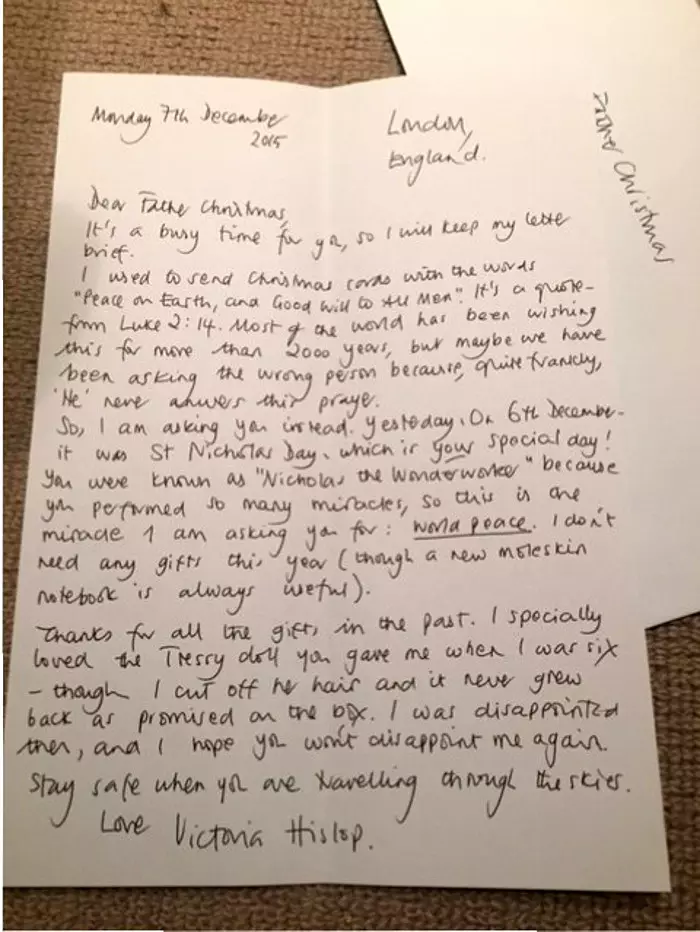 Monday 7th December
2015
London,
England.
Father Christmas
Dear Father Christmas,
It's a busy time for you, so I will keep my letter
brief.
I used to send Christmas cards with the words
"Peace on Earth, and Good Will to All Men". It's a quote
from Luke 2:14. Most of the world has been wishing
this for more than 2000 years, but maybe we have
been asking the wrong person because, quite frankly,
'He' never answers this prayer.
So, I am asking you instead. Yesterday, On 6th December
it was St Nicholas Day, which is your special day!
You were known as "Nicholas the Wonderworker" because
you performed so many miracles, so this is one
miracle I am asking you for: world peace. I don't
need any gifts this year (though a new moleskin
notebook is always useful).
Thanks for all the gifts in the past. I specially
loved the Tressy doll you gave me when I was six
– though I cut off her hair and it never grew
back as promised on the box. I was disappointed
then, and I hope you won't disappoint me again.
Stay safe when you are travelling through the skies.
Love Victoria Hislop.